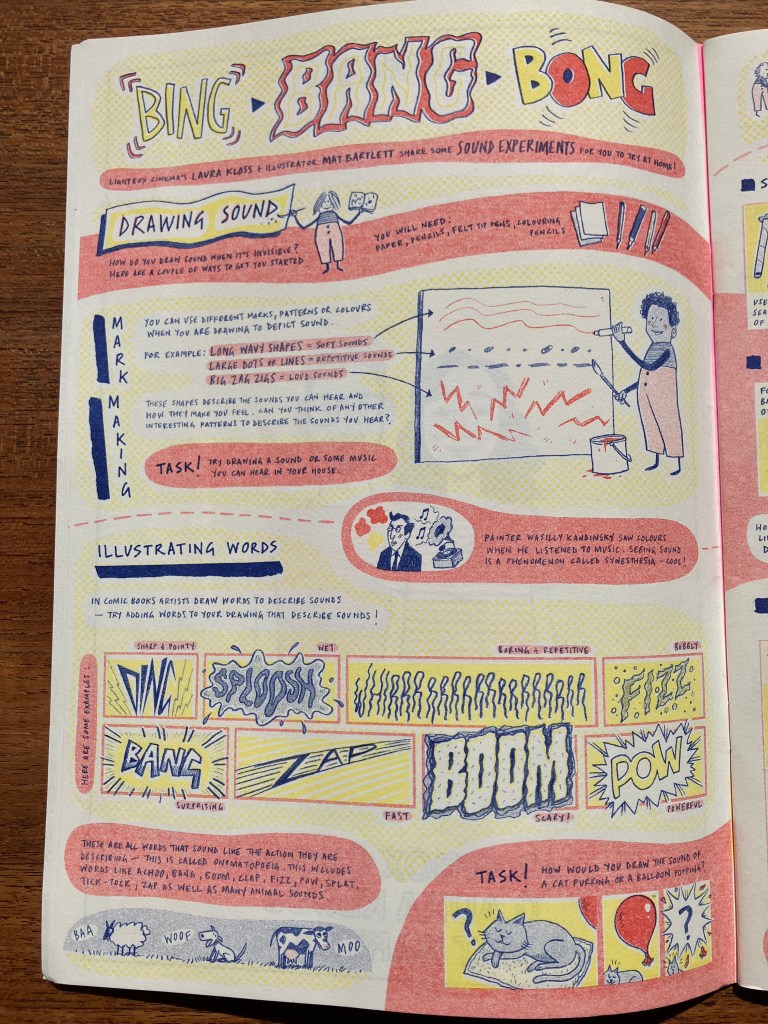 BING BANG BONG
LIGHTBOX CINEMA'S LAURA KLOSS + ILLUSTRATOR MAT BARTLETT SHARE SOME SOUND EXPERIMENTS FOR YOU TO TRY AT HOME!
DRAWING SOUND
HOW DO YOU DRAW SOUND WHEN IT'S INVISIBLE?
HERE ARE A COUPLE OF WAYS TO GET YOU STARTED
YOU WILL NEED:
PAPER, PENCILS, FELT TIP PENS, COLOURING
PENCILS
MARK MAKING
YOU CAN USE DIFFERENT MARKS, PATTERNS OR COLOURS
WHEN YOU ARE DRAWING TO DEPICT SOUND.
FOR EXAMPLE: LONG WAVY SHAPES = SOFT SOUNDS
LARGE DOTS OF LINES = REPETITIVE SOUNDS
BIG ZAG ZIGS = LOUD SOUNDS
THESE SHAPES DESCRIBE THE SOUNDS YOU CAN HEAR AND
HOW THEY MAKE YOU FEEL. CAN YOU THINK OF ANY OTHER
INTERESTING PATTERNS TO DESCRIBE THE SOUNDS YOU HEAR?
TASK! TRY DRAWING A SOUND OR SOME MUSIC
YOU CAN HEAR IN YOUR HOUSE.
PAINTER WASILLY KANDINSKY SAW COLOURS
WHEN HE LISTENED TO MUSIC. SEEING SOUND
IS A PHENOMENON CALLED SYNESTHESIA - COOL!
ILLUSTRATING WORDS
IN COMIC BOOKS ARTISTS DRAW WORDS TO DESCRIBE SOUNDS
— TRY ADDING WORDS TO YOUR DRAWING THAT DESCRIBE SOUNDS!
HERE ARE SOME EXAMPLES:
SHARP + POINTY
DING
WET
SPLOOSH
BORING + REPETITIVE
WHIRRRRRRRRRRRRRRRR
BUBBLY
FIZZ
BANG
SURPRISING
ZAP
FAST
BOOM
SCARY!
POW
POWERFUL
THESE ARE ALL WORDS THAT SOUND LIKE THE ACTION THEY ARE
DESCRIBING — THIS IS CALLED ONOMATOPOEIA. THIS INCLUDES
WORDS LIKE ACHOO, BANG, BOOM, CLAP, FIZZ, POW, SPLAT,
TICK-TOCK, ZAP AS WELL AS MANY ANIMAL SOUNDS
BAA
WOOF
MOO
TASK! HOW WOULD YOU DRAW THE SOUND OF
A CAT PURRING OR A BALLOON POPPING?
?
?